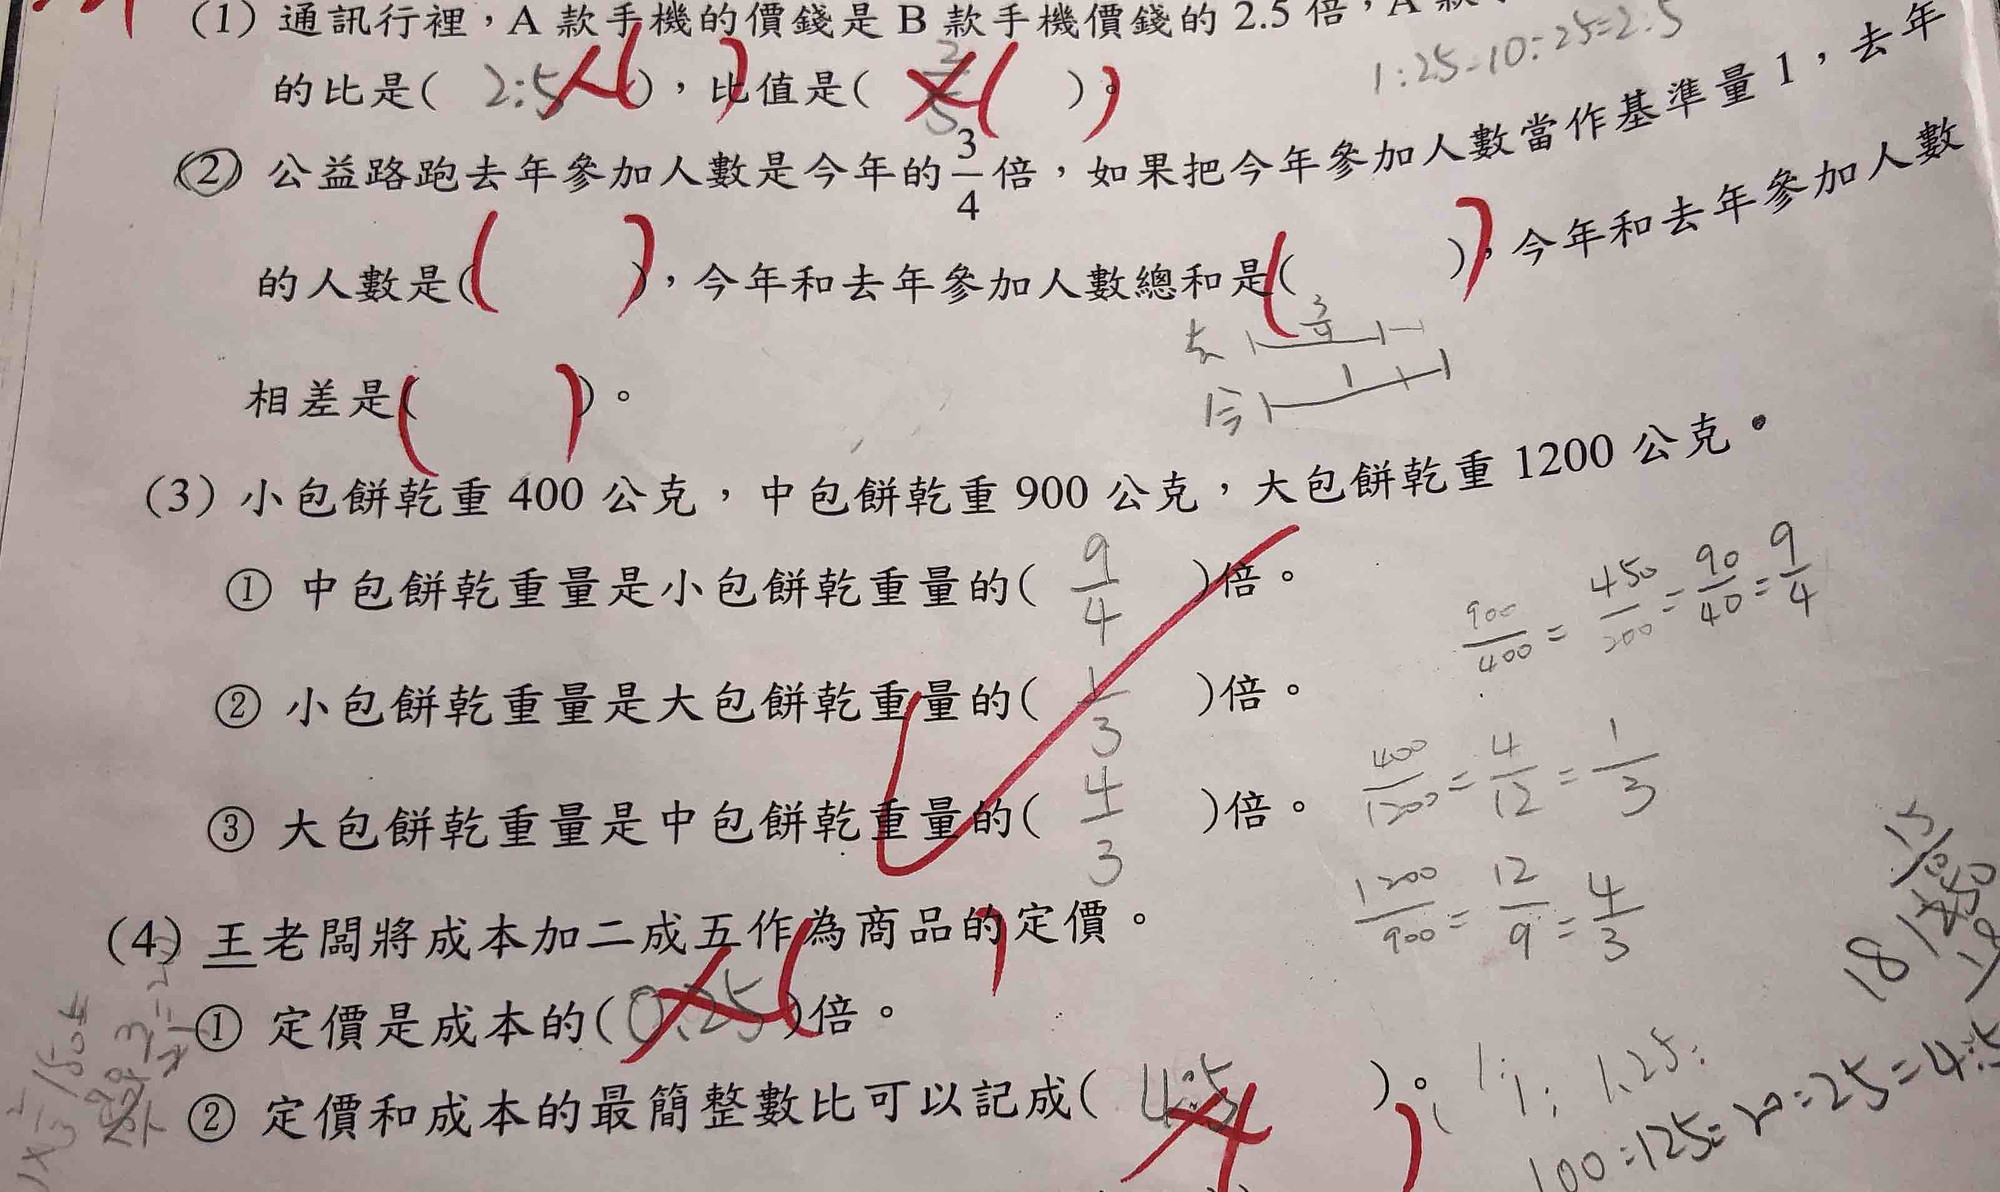 (1) 通訊行裡，A 款手機的價錢是 B 款手機價錢的 2.5 倍，A 款
1:25=10:25=2:5
的比是( 2:5 )，比值是( 2/5 )。
(2) 公益路跑去年參加人數是今年的 3/4 倍，如果把今年參加人數當作基準量 1，去年
的人數是( )，今年和去年參加人數總和是( )，今年和去年參加人數
去 3/4
今 1
相差是( )。
(3) 小包餅乾重 400 公克，中包餅乾重 900 公克，大包餅乾重 1200 公克。
① 中包餅乾重量是小包餅乾重量的( 9/4 )倍。
900/400 = 450/200 = 90/40 = 9/4
② 小包餅乾重量是大包餅乾重量的( 1/3 )倍。
400/1200 = 4/12 = 1/3
③ 大包餅乾重量是中包餅乾重量的( 4/3 )倍。
1200/900 = 12/9 = 4/3
(4) 王老闆將成本加二成五作為商品的定價。
① 定價是成本的( 0.25 )倍。
② 定價和成本的最簡整數比可以記成( 4:5 )。
1: 1.25:
100:125=20:25=4:5